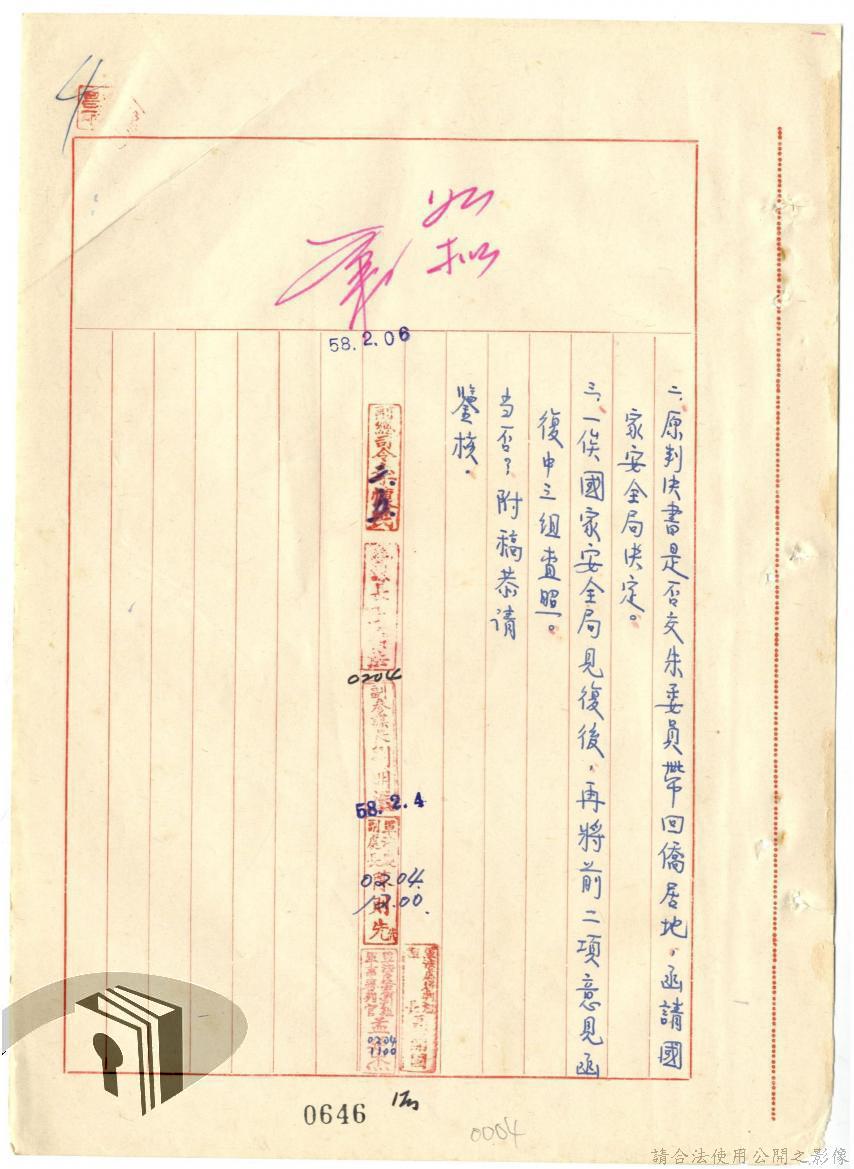 4
如
擬
58.2.06
二、原判決書是否交朱委員帶回僑居地,函請國
家安全局決定。
三、一俟國家安全局見復後,再將前二項意見函
復中三組查照。
当否?附稿恭請
鑒核.
副總司令
二.
0204
副參謀長
58.2.4
副處長
0204
17.00
0204
1100
0646
0004
請合法使用公開之影像